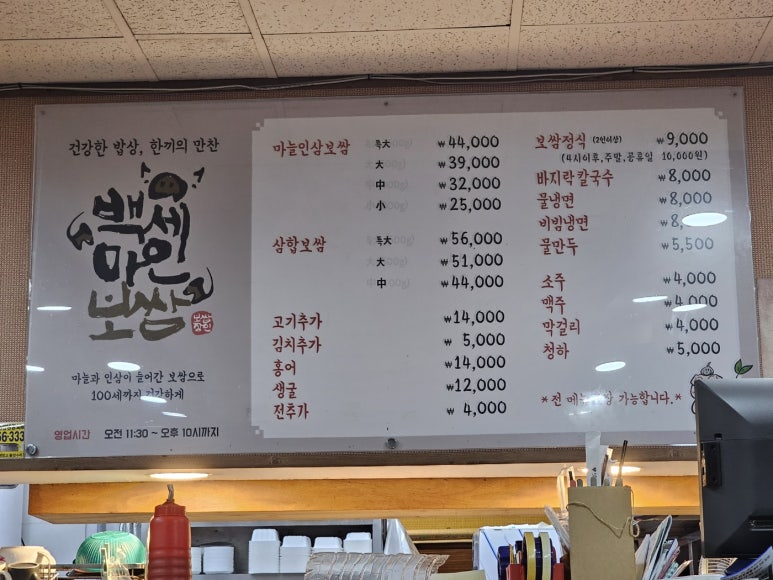 건강한 밥상, 한끼의 만찬
백세
마인
보쌈
마늘과 인삼이 들어간 보쌈으로
100세까지 건강하게
영업시간 오전 11:30 ~ 오후 10시까지
마늘인삼보쌈 특大 ₩44,000
大 ₩39,000
中 ₩32,000
小 ₩25,000
삼합보쌈 특大 ₩56,000
大 ₩51,000
中 ₩44,000
고기추가 ₩14,000
김치추가 ₩5,000
홍어 ₩14,000
생굴 ₩12,000
전추가 ₩4,000
보쌈정식 (2인이상) ₩9,000
(4시이후,주말,공휴일 10,000원)
바지락칼국수 ₩8,000
물냉면 ₩8,000
비빔냉면 ₩8,
물만두 ₩5,500
소주 ₩4,000
맥주 ₩4,000
막걸리 ₩4,000
청하 ₩5,000
*전 가능합니다.*